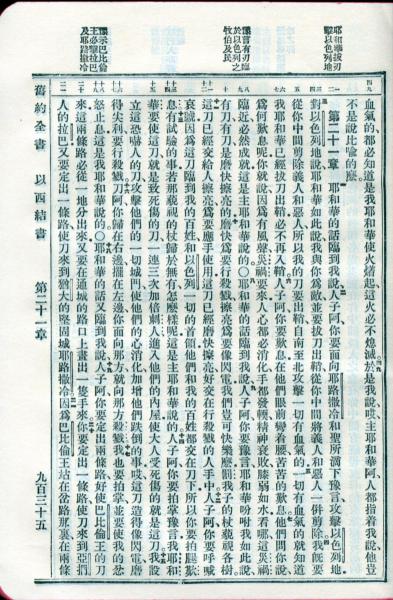 耶和華拔刃
擊以色列地
豫言有刃臨
於以色列之
牧伯及民
豫示巴比倫
王必擊拉巴
及耶路撒冷
血氣的都必知道是我耶和華使火𤏲起這火必不熄滅於是我說唉主耶和華阿人都指着我說他豈
不是說比喻的麼
第二十一章 耶和華的話臨到我說人子阿你要面向耶路撒冷和聖所滴下豫言攻擊以色列地
對以色列地說耶和華如此說我與你爲敵並要拔刀出鞘從你中間將義人和惡人一併剪除我旣要
從你中間剪除義人和惡人所以我的刀要出鞘自南至北攻擊一切有血氣的一切有血氣的就知道
我耶和華已經拔刀出鞘必不再入鞘人子阿你要歎息在他們眼前彎着腰苦苦的歎息他們問你說
爲何歎息呢你就說因爲有風聲災禍要來人心都必消化手都發軟精神衰敗膝弱如水看哪這災禍
臨近必然成就這是主耶和華說的〇耶和華的話臨到我說人子阿你要豫言耶和華吩咐我如此說
有刀有刀是磨快擦亮的磨快爲要行殺戮擦亮爲要像閃電我們豈可快樂麼罰我子的杖藐視各樹
這刀已經交給人擦亮爲要應手使用這刀已經磨快擦亮好交在行殺戮的人手中人子阿你要呼喊
哀號因爲這刀臨到我的百姓和以色列一切的首領他們和我的百姓都交在刀下所以你要拍腿歎
息有試驗的事若那藐視的杖歸於無有怎麼樣呢這是主耶和華說的人子阿你要拍掌豫言我耶和
華要使這刀就是致死傷的刀一連三次加倍刺人進入他們的內屋使大人受死傷的就是這刀我設
立這恐嚇人的刀攻擊他們的一切城門使他們的心消化加增他們跌倒的事唉這刀造得像閃電磨
得尖利要行殺戮刀阿你歸在右邊擺在左邊你面向那方就向那方殺戮我也要拍掌並要使我的忿
怒止息這是我耶和華說的〇耶和華的話又臨到我說人子阿你要定出兩條路好使巴比倫王的刀
來這兩條路必從一地分出來又要在通城的路口上畫出一隻手來你要定出一條路使刀來到亞捫
人的拉巴又要定出一條路使刀來到猶大的堅固城耶路撒冷因爲巴比倫王站在岔路那裏在兩條
舊約全書 以西結書 第二十一章 九百三十五